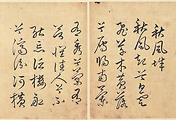 秋風辭
秋風起兮白雲
飛草木黃落
兮雁南歸蘭
有秀兮菊有
芳懷佳人兮不
能忘泛樓船
兮濟汾河橫